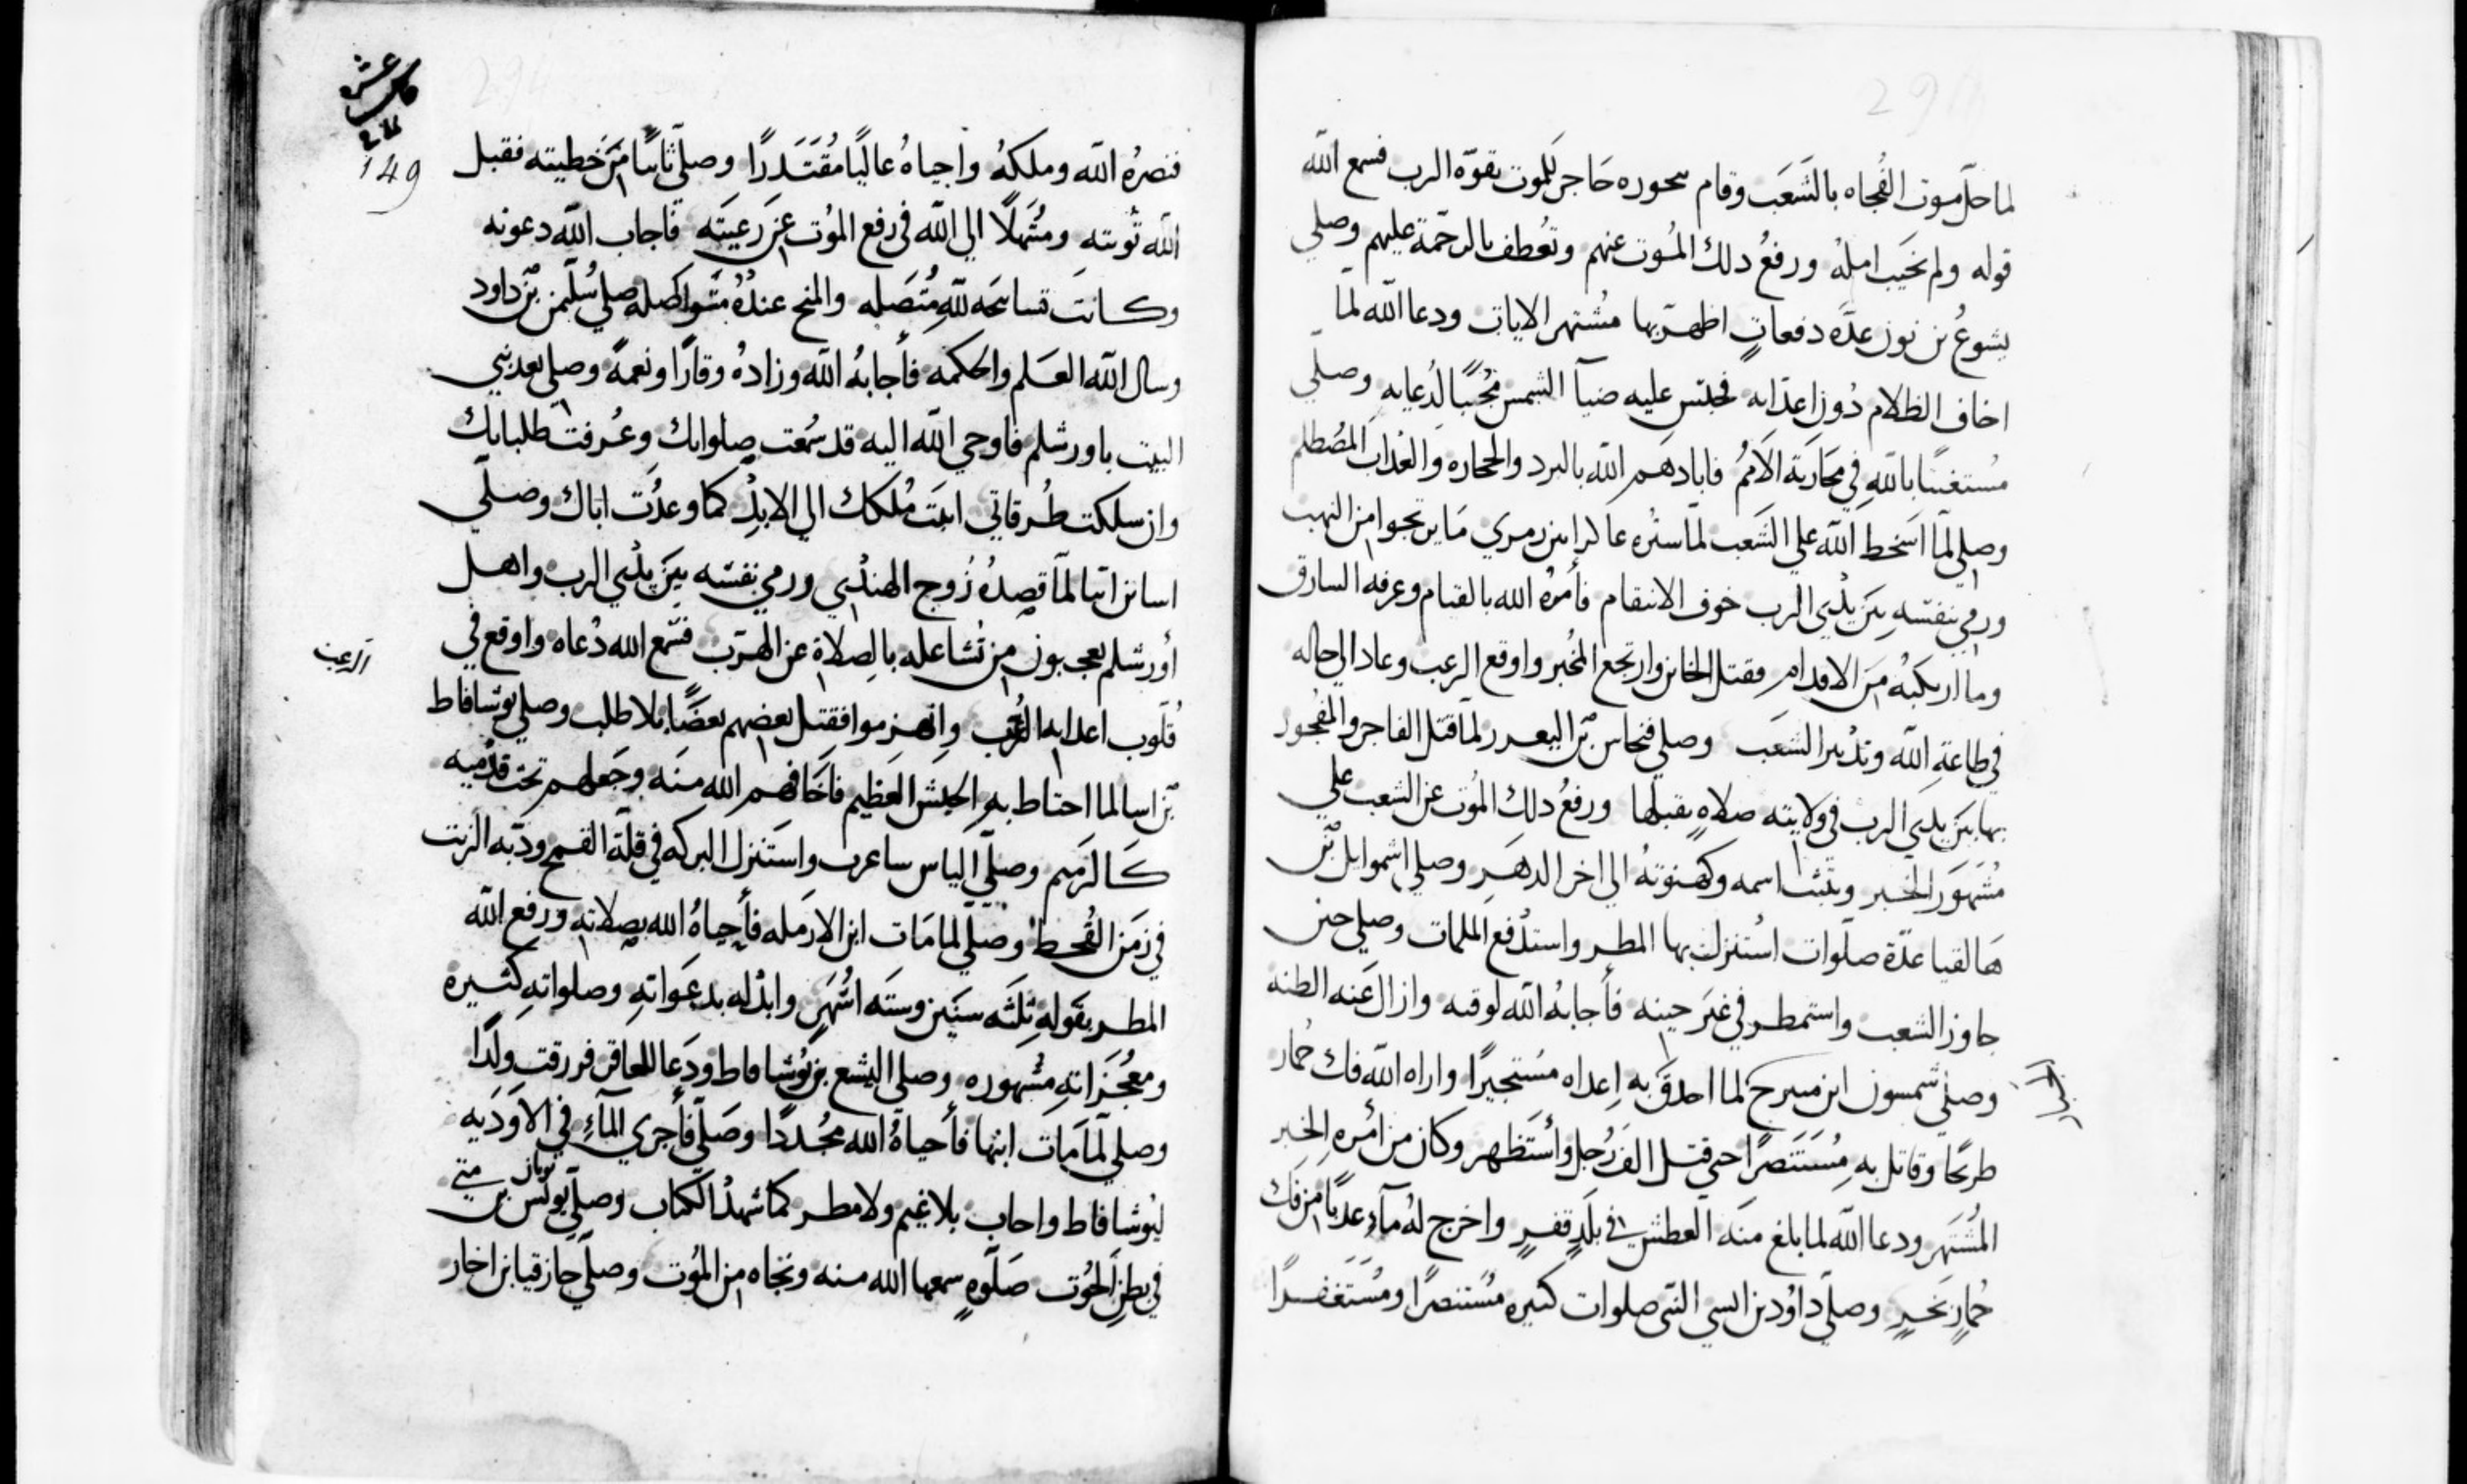 لما حلّ موت الفُجاه بالشَعَب وقام بحوره حَاجز للموت بقوّة الرب فسمع الله
قوله ولم يخَيب امله ورفعُ دلك المُوت عنهم وتعُطف بالرحَمة عليهم وصلي
يشوعُ بن نون عدّه دفعاتٍ اظهر بها مشُتهر الايات ودعا الله لمّا
اخاف الظلام دُون اعدايه فحبّس عليه ضيآ الشمس مُجُيبًا لدُعايه وصلّي
مُستغيثًا بالله في محَاربَة الاَممُ فابادهم الله بالبرد والحجاره والعُداب المصُطلم
وصلي لمّا اسَخط الله علي الشَعب لمّا ستره عاكر ابن زمري مَا يرتجوا من النهب
ورمي بنفسَه بيَن يدُي الرب خوف الانتقام فأمرهُ الله بالقيام وعرفه السارق
وما ارتكبهُ من الاقدام فقتل الخاين وارتجع المخُبر واوقع الرعب وعاد الي حاله
في طاعة الله وتدُبير الشعَب وصلي فنحاس بن اليعزر لمّا قتل الفاجر والمفُجور
بها بيَن يدي الرب في ولايته صلاهٍ يقبلها ورفعُ دلك المُوت عن الشعب علي
مُشَهوَر الخبر ويثبت اسمه وكهنوتهُ الي اخر الدهَر وصلي اشموايل بن
هَالقيا عدّة صلَوات استُنزل بها المطر واستدُفع الملمات وصلي حين
جاوز الشعب واستمطر في غيَر حينه فأجابهُ الله لوقته وازال عَنه الظنه
وصلّي شمسون ابن مسرح لما احدقَ به اعداه مسُتجيرًا واراه الله فك حُمار
الجبار
طريحًا وقاتل به مسُتنَصرًا حتي قتل الف رُجل وأستَظهر وكان من امُره الخبر
المُشَتهر ودعا الله لما بلغ منهَ العطش في بلَدٍ قفرٍ واخرج لهُ مآءِ عدبًا من فك
حُمارٍ نخرٍ وصلّي داوُد بن ايسي النبي صلوات كتيره مسُتنصرًا ومُستَغفرًا
عشر
149
فنصرُه الله وملكهُ واحياهُ عاليًا مُقتَدرًا وصلّي تايبًا من خطيته فقبل
الله توُبته ومتُهلًا الي الله في رفع الموُت عن رعيتَه فاجاب الله دعوته
وكانت تسابيحَه للهِ متُصَله والمنح عندُهُ متوُاصله صلي سُليمن بن داود
وسال الله العَلم والحكمه فأجابهُ الله وزادهُ وقارًا ونعمهً وصلي بعد بني
البيت باورشلم فاوحي الله اليه قد سَمُعت صلواتك وعُرفت طلباتك
وان سلكت طُرقاتي اثبت مُلكك الي الابدُ كما وعدُت اباك وصلّي
اسا بن ابيا لمّا قصدهُ زوُج الهندُي ورمي نفسَه بيَن يدُي الرب واهل
أورشلم يعجبون من تشاغله بالصلاة عن الهرب فسَمع الله دُعاه واوقع في
قُلوب اعدايه الرُعب وانهزموا فقتل بعضهم بعضًا بلا طلب وصلي يوُشافاط
الرعب
بن اسا لما احتاط به الجيش العظيم فأخَافهم الله منهَ وجَعلهم تحت قدُميه
كالرَميم وصلّي الياس ساعرب واستَنزل البركه في قلّة القمح ودبّه الزيت
في زمَن القُحط وصلّي لما مَات ابن الارمله فأحياهُ الله بصلاته ورفع الله
المطر بقَوله ثلثَه سنيَن وستَه اشُهرٍ وابدله بدعَواتهِ وصلواته كثيره
ومعُجَزاتهِ مشُهوره وصلي اليشع بن يوُشافاط ودَعا للعاقر فرزقت ولدًا
وصلي لمّا مَات ابنها فأحياهُ الله مجُددًا وصَلّي فأجري المآءِ في الاوَديه
ليوُشافاط واجاب بلا غيم ولا مطر كما شهدُ الكتاب وصلّي يونس بن متي
في بطن الحوُت صَلَوهٍ سمعها الله منه ونجاه من الموُت وصلّي حازقيا بن اخاز